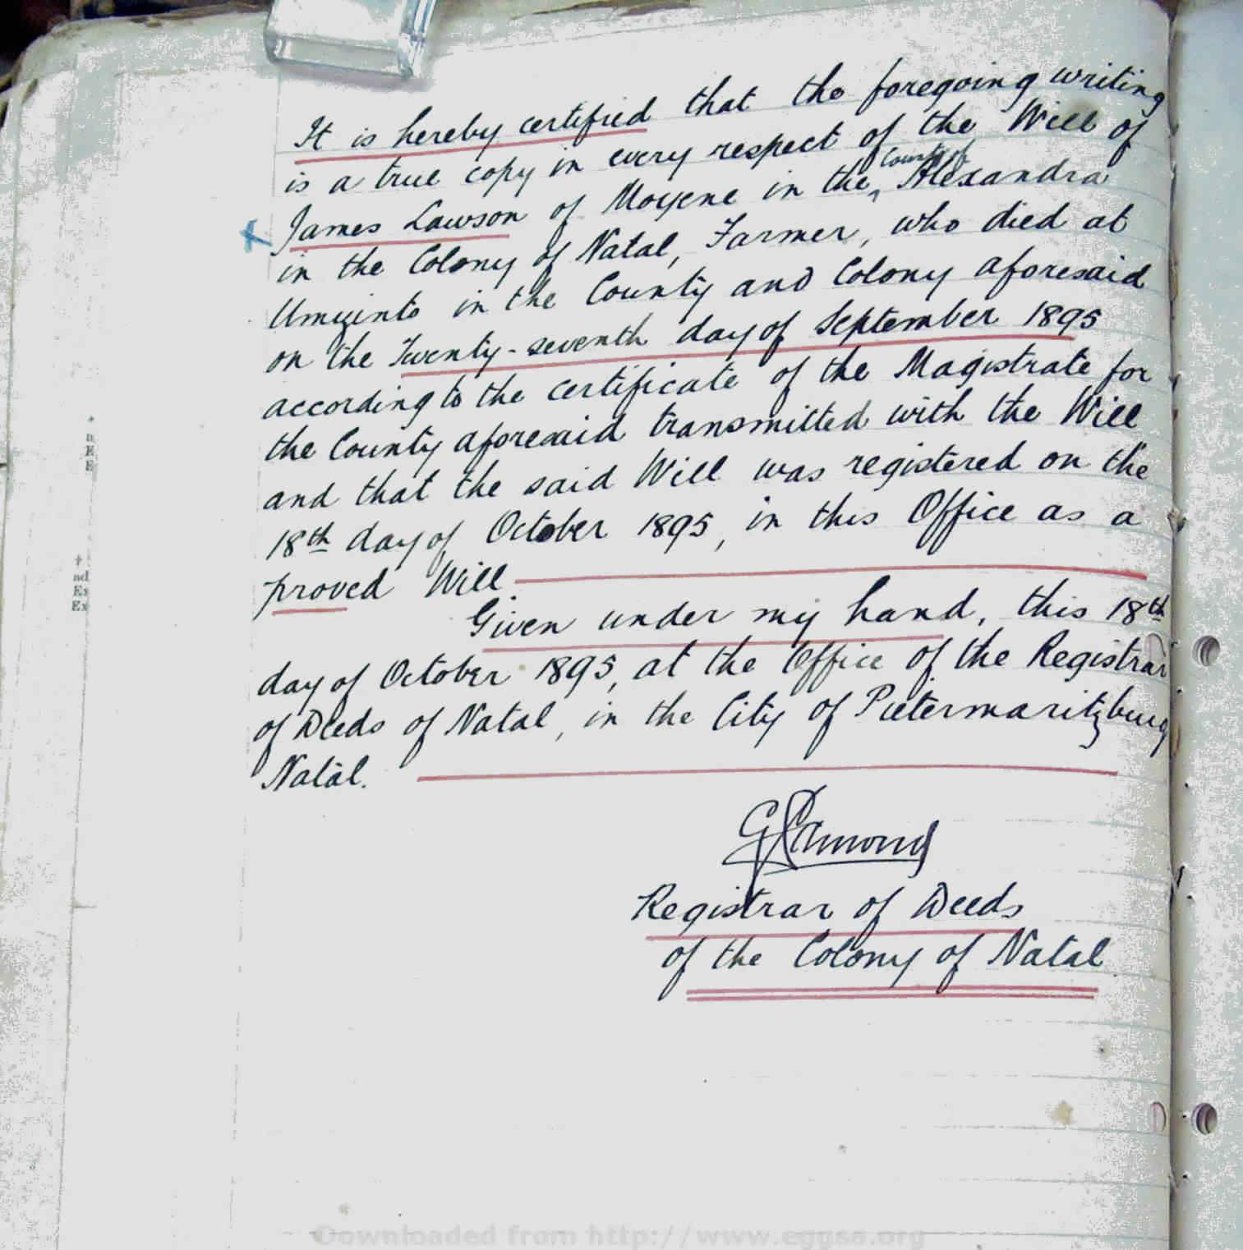 It is hereby certified that the foregoing writing
is a true copy in every respect of the Will of
James Lawson of Moyene in the ^County of Alexandra
in the Colony of Natal, Farmer, who died at
Umzinto in the County and Colony aforesaid
on the Twenty-seventh day of September 1895
according to the certificate of the Magistrate for
the County aforesaid transmitted with the Will
and that the said Will was registered on the
18th day of October 1895, in this Office as a
proved Will.
Given under my hand, this 18th
day of October 1895, at the Office of the Registrar
of Deeds of Natal, in the City of Pietermaritzburg
Natal.
Registrar of Deeds
of the Colony of Natal
Downloaded from http://www.eggsa.org